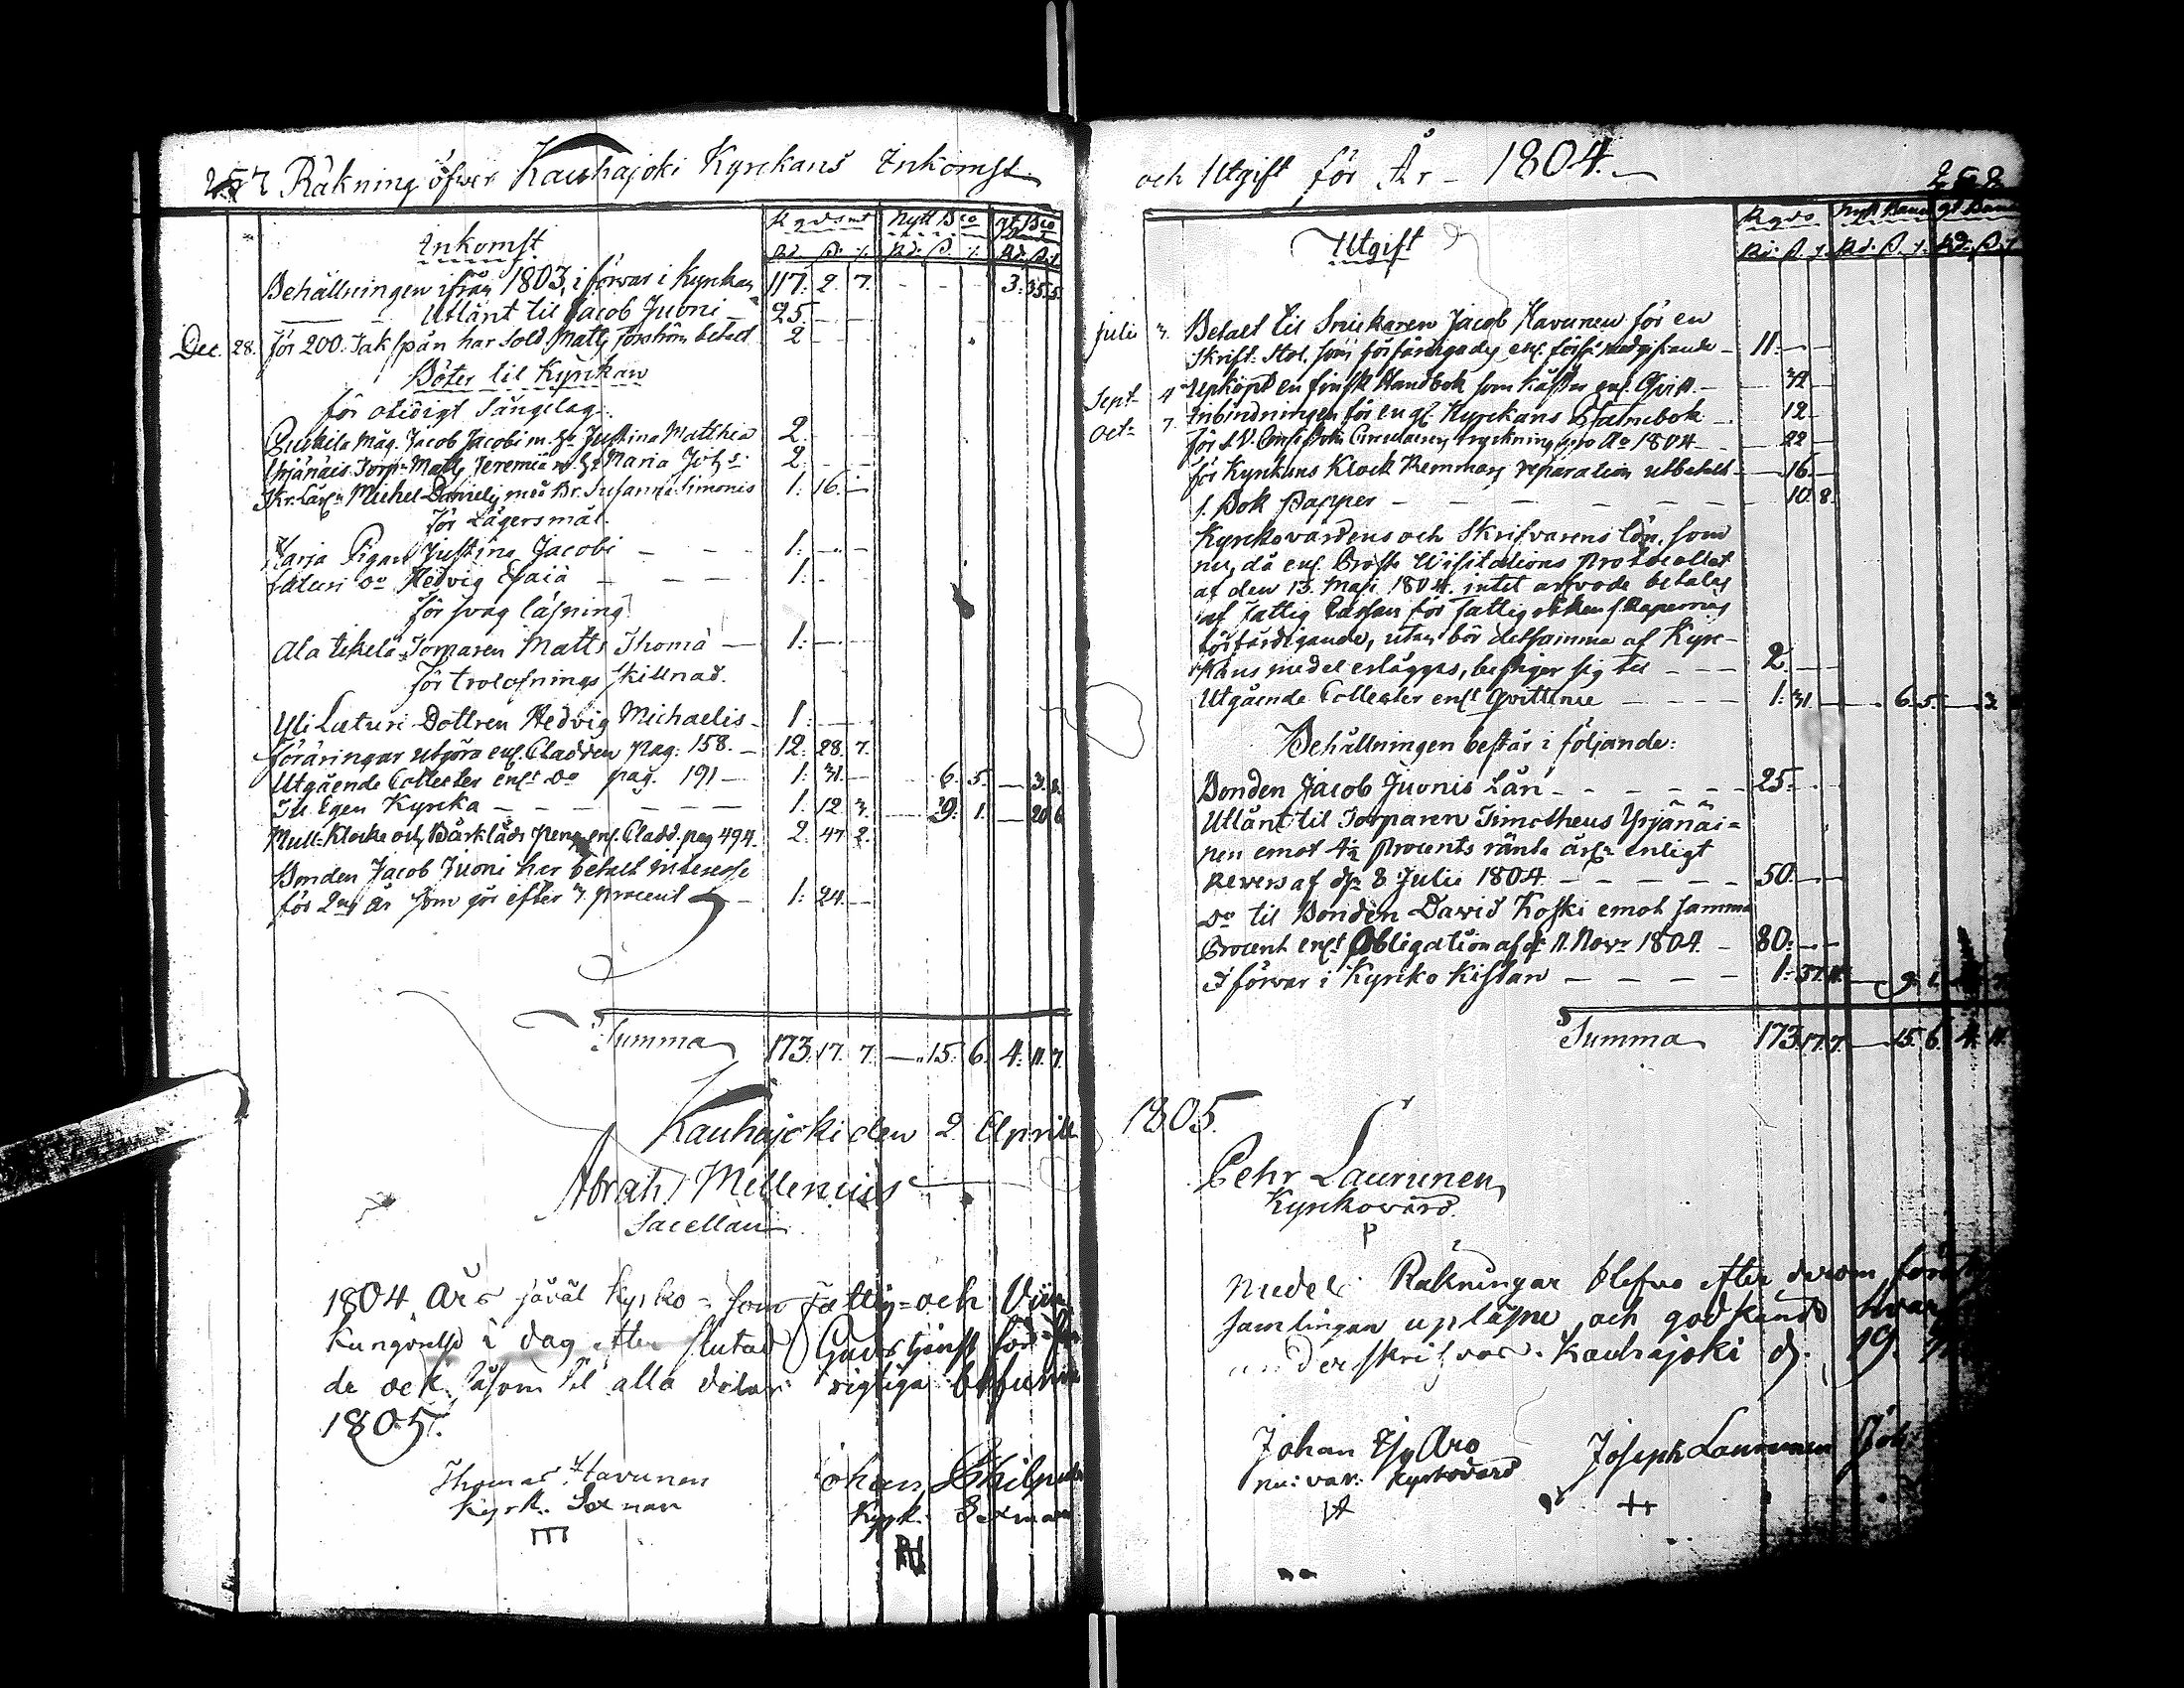 257 Räkning öfver Kauhajoki Kyrckans Inkomst
Inkomst
R gds mt Nytt Bco gt Bco
Rd. ß. Rd. ß. Rd. ß.
Behållningen ifrån 1803, i förvar i Kyrkan 117. 2. 7. - - - 3. 35. 5.
Utlånt til Jacob Juoni 25.
Dec. 28. för 200. Tak spån har Sold. Matts betalt 2
Böter til Kyrckan
för otidigt Sängelag
Måg. Jacob Jacobi m. H. Justina Matthiæ 2.
Yrjänäis Torp. Matts Jeremiæ m. H. Maria 2.
Michel Daniels med Hr. Susanna Simonis 1. 16.
för Lägersmål.
Harja Pigan Justina Jacobi 1.
Luturi Do Hedvig Esaiä 1.
för svag läsning
Ala Torparen Matts Thomä 1.
för trolofnings skillnad.
Yli Luturi Dottren Hedvig Michaelis 1.
föräringar utgöra enl. Cladden pag. 158. 12. 28. 7.
Utgående Collecter enl. Do pag. 191 1. 31. 6. 5. 3.
Til Egen Kyrcka 1. 12. 9. 1. 20 6
Mull- Klocke och Bårkläds peng. enl. Cladd. pag 494. 2. 47. 2.
Bonden Jacob Juoni har betalt interesse
för 2ne år som gör efter 3. procent 1. 24.
Summa 173. 17. 7. 15. 6. 4. 11. 7.
Kauhajoki den 2 Aprill
Abrah. Mellenius
Sacellan
1804 Års såväl Kyrko- som Fattig- och
Kungörelse i dag efter slutad Gudstjenst för
de och såsom til alla delar rigtiga befunne
1805.
Thomas Havunen
Kyrk. Sexman
Johan
Kyrk. Sexman
och Utgift för År 1804.
258
Utgift
R gds Nytt Banco gt Banco
Rd. ß. Rd. ß. Rd. ß.
Julii 3. Betalt til Snickaren Jacob Havunen för en
Skrift-Stol, som förfärdigades enl. 11.
Sept. 4 Upköpt en finsk Handbok som kåstar enl. Qvitt. 32
Octr 7. Inbindningen för en gl. Kyrckans Psalmebok 12
för Circulairers tryckning pro Ao 1804 22
för Kyrckans Klock Remmars reparation utbetalt 16.
1. Bok Papper 10. 8.
Kyrckovärdens och Skrifvarens lön, som
nu, då enl. Prosts Visitations Protocollet
af den 13. Maji 1804. intet arfvode betalas
af Fattig Cassan för fattig räkenskapernas
förfärdigande, utan bör detsamma af Kyrc-
kans medel erläggas, bestiger sig til 2
Utgående Collecter enl. Qvittence 1. 31. 6. 5. 3
Behållningen består i följande:
Bonden Jacob Juonis Lån 25.
Utlånt til Torparen Timotheus Yrjänäi-
nen emot 4½ Procents ränta enligt
Revers af d. 8 Julii 1804 50.
Do til Bonden David Koski emot samma
Procent enl. Obligation af d. 11. Novr 1804 80.
I förvar i Kyrcko Kistan 1. 37. 11. 9. 1.
Summa 173. 17. 7. 15. 6. 4. 11.
1805.
Pehr Laurunen
Kyrkovärd.
medels Räkningar blefvo efter derom
samlingen upläsne och godkände
underskrifvas. Kauhajoki d. 19.
Johan Äijö Aro
nu: var: Kyrkovärd
Joseph Laurunen